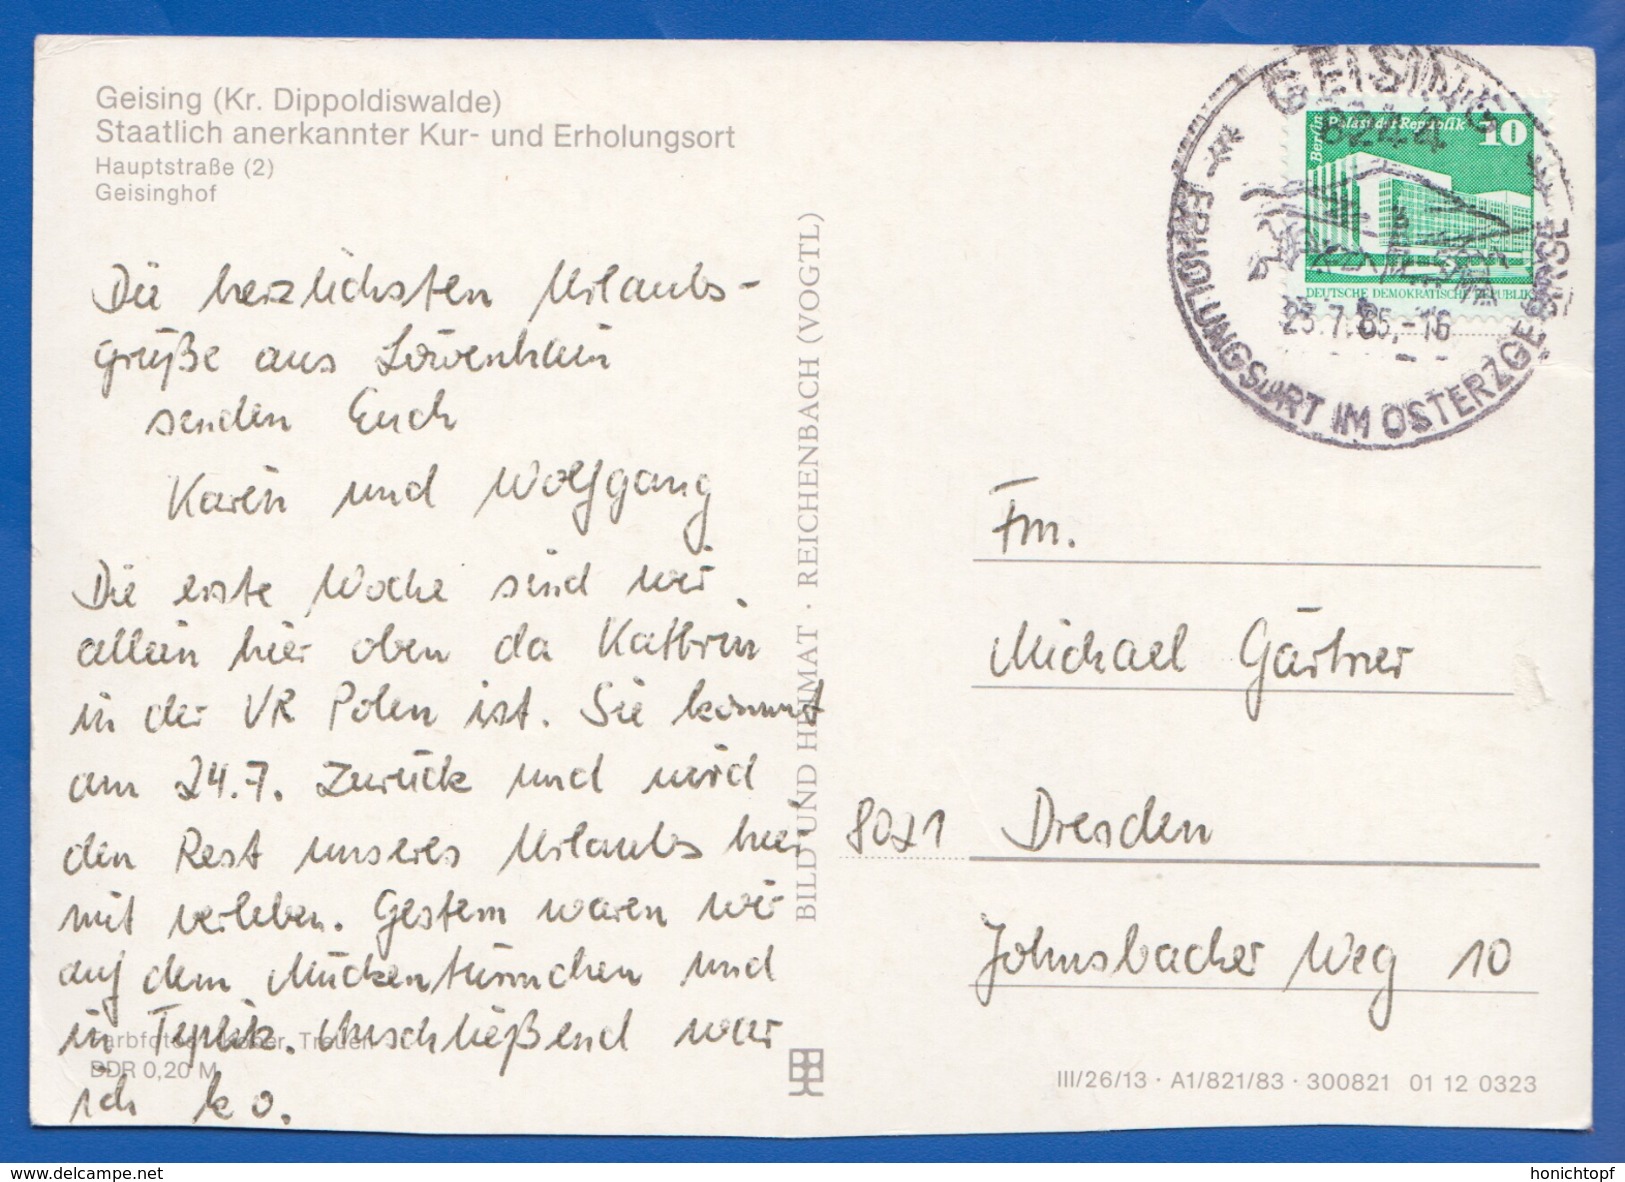 Geising (Kr. Dippoldiswalde)
Staatlich anerkannter Kur- und Erholungsort
Hauptstraße (2)
Geisinghof
Die herzlichsten Urlaubs-
grüße aus Löwenhain
senden Euch
Karin und Wolfgang
Die erste Woche sind wir
allein hier oben da Kathrin
in der VR Polen ist. Sie kommt
am 24.7. zurück und wird
den Rest unseres Urlaubs hier
mit verleben. Gestern waren wir
auf dem Mückentürmchen und
in Teplitz. Anschließend war
ich k o.
Farbfotos: Treuen
DDR 0,20 M
BILD UND HEIMAT · REICHENBACH (VOGTL)
GEISING
8244
ERHOLUNGSORT IM OSTERZGEBIRGE
23.7.85,-16
Berlin Palast der Republik
10
DEUTSCHE DEMOKRATISCHE REPUBLIK
Fm.
Michael Gärtner
8021 Dresden
Johnsbacher Weg 10
III/26/13 · A1/821/83 · 300821 01 12 0323
www.delcampe.net
honichtopf